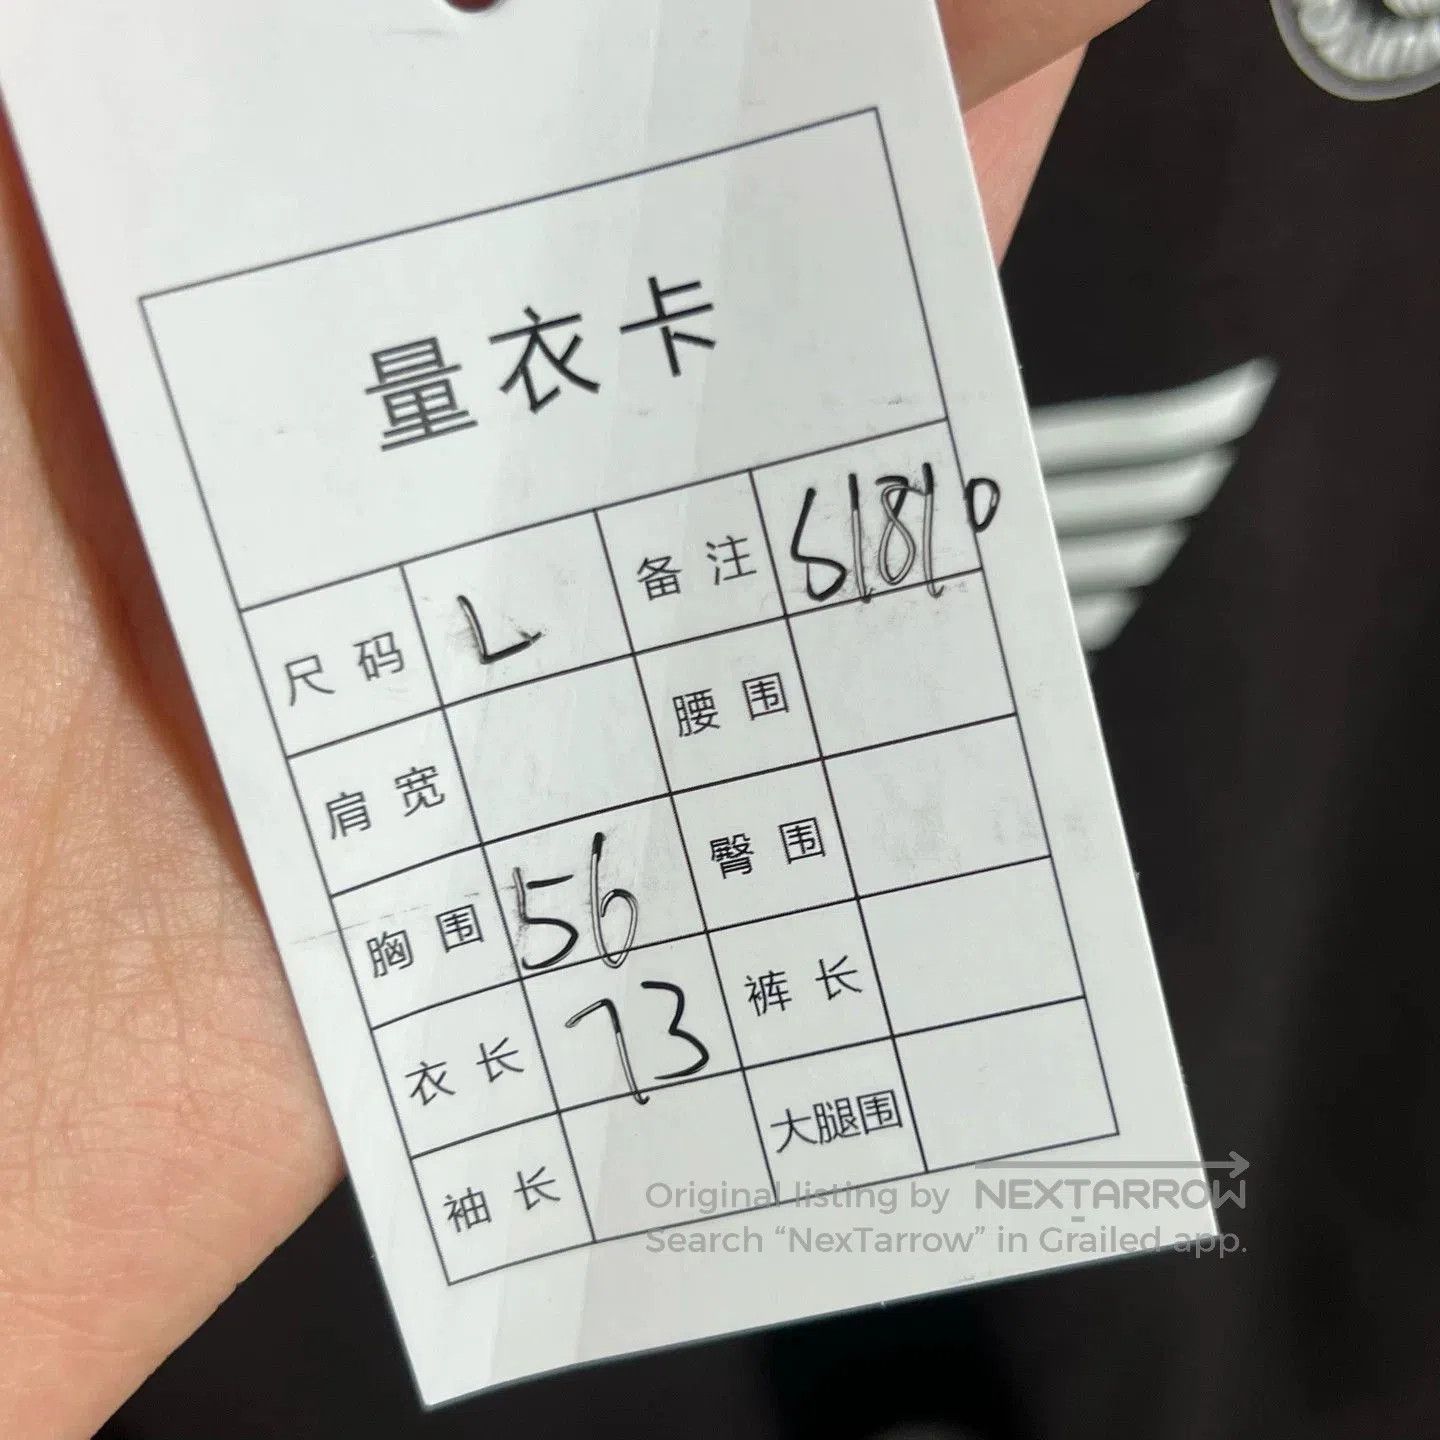 量衣卡
尺码 L 备注 S1810
肩宽 腰围
胸围 56 臀围
衣长 73 裤长
袖长 大腿围
Original listing by NEXTARROW
Search “NexTarrow” in Grailed app.